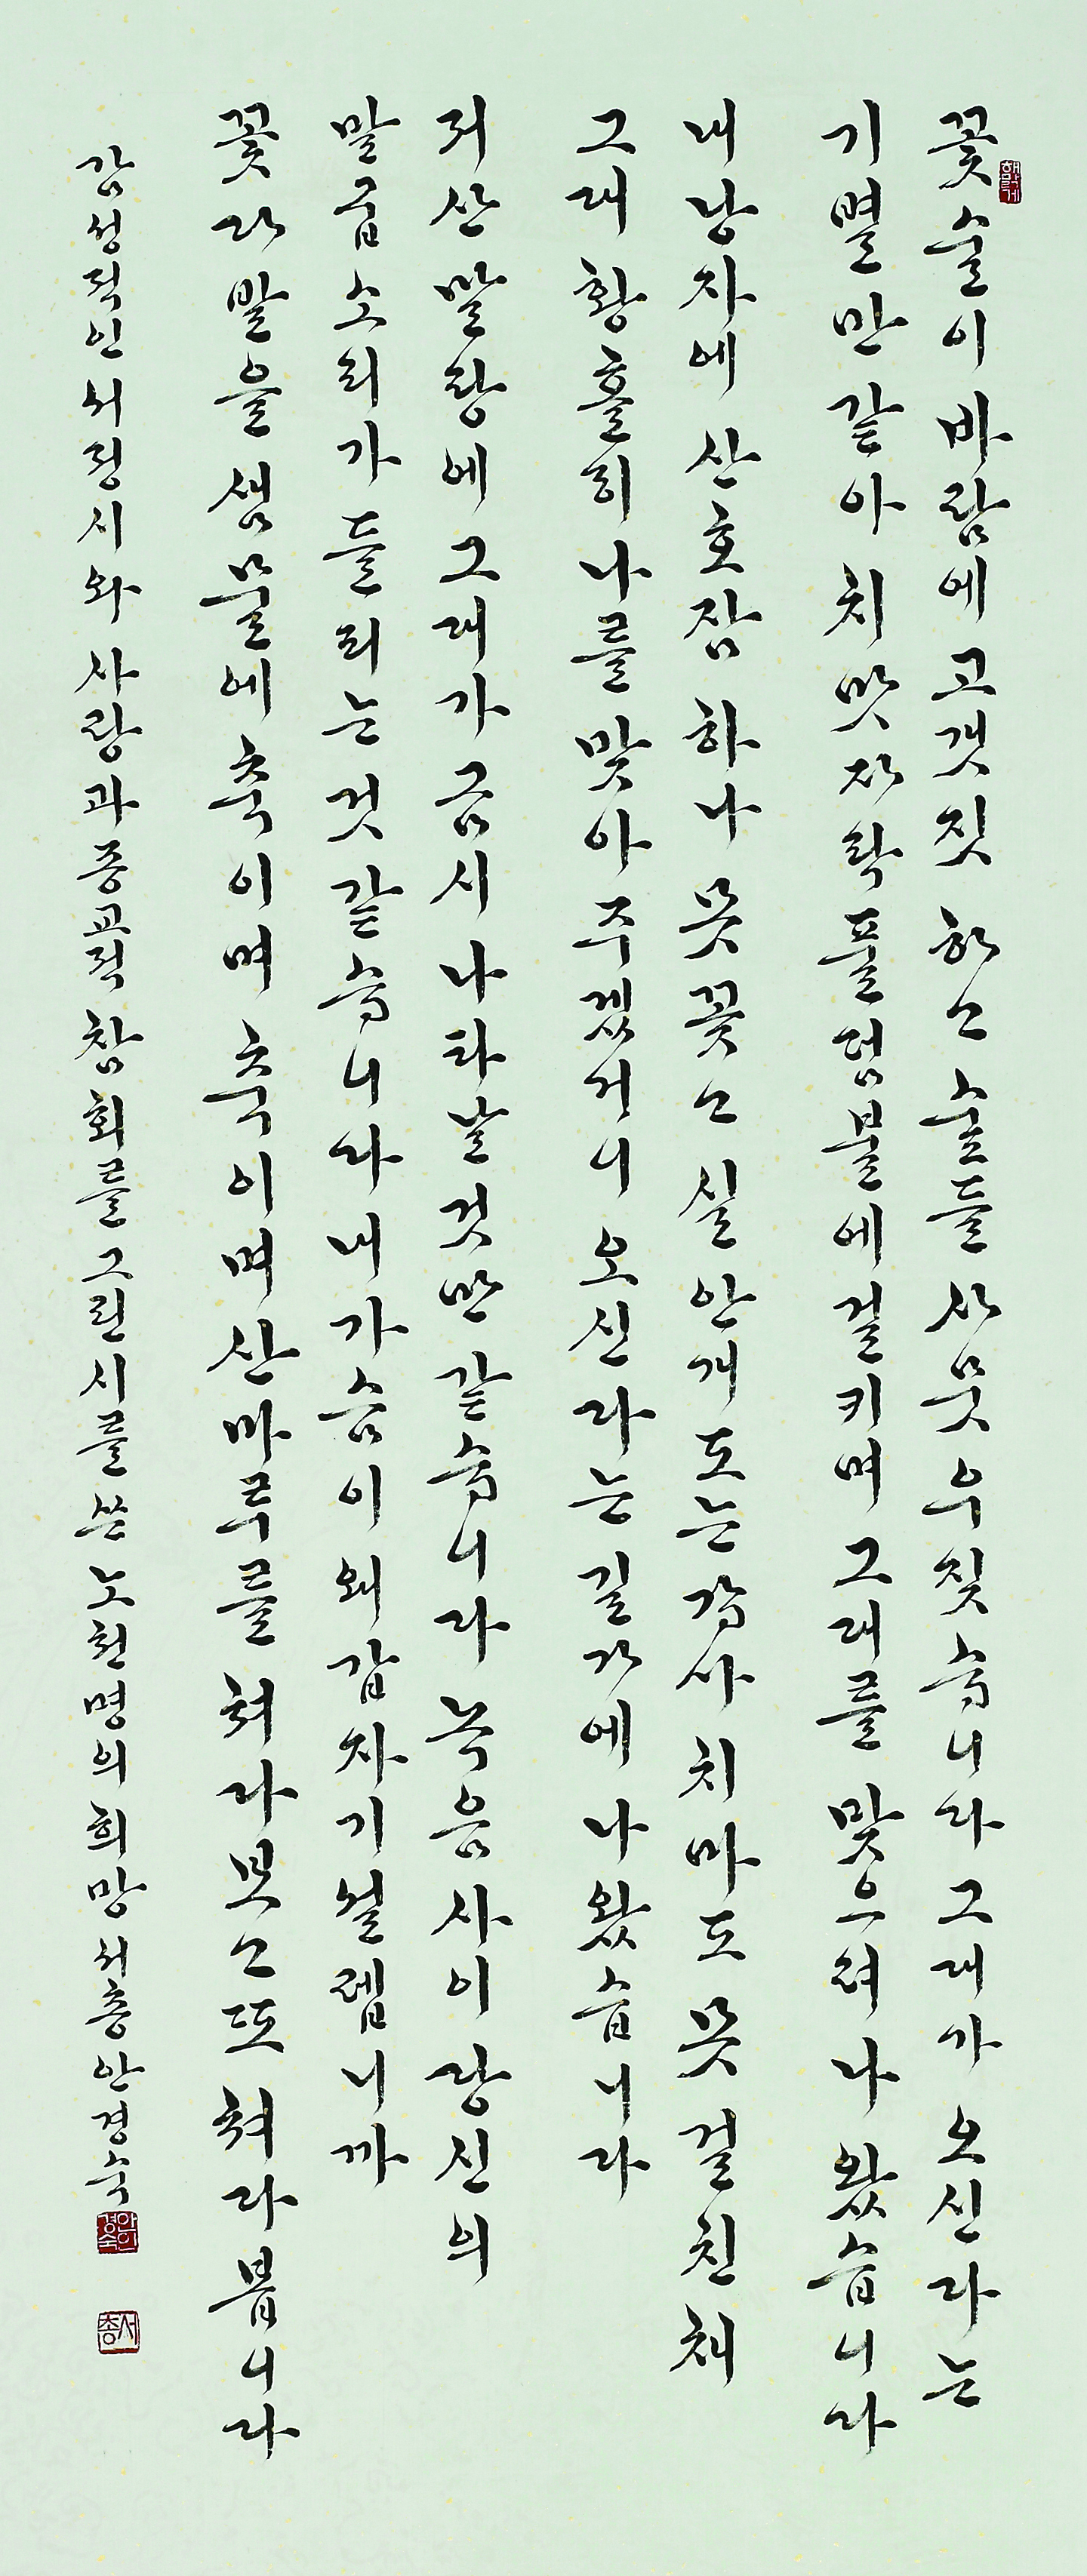 꽃술이 바람에 고갯짓 하고 숲들 사뭇 우짖습니다 그대가 오신다는
기별만 같아 치맛자락 풀덤불에 걸키며 그대를 맞으려 나왔습니다
내 낭자에 산호잠 하나 못 꽂고 실안개 도는 갑사치마도 못 걸친 채
그대 황홀히 나를 맞아 주겠거니 오신다는 길가에 나왔습니다
저 산말랑에 그대가 금시 나타날 것만 같습니다 녹음 사이 당신의
말굽소리가 들리는 것 같습니다 내 가슴이 왜 갑자기 설렙니까
꽃다발을 샘물에 축이며 축이며 산마루를 쳐다보고 또 쳐다봅니다
감성적인 서정시와 사랑과 종교적 참회를 그린 시를 쓴 노천명의 희망 서총 안경숙
안경숙인
서총